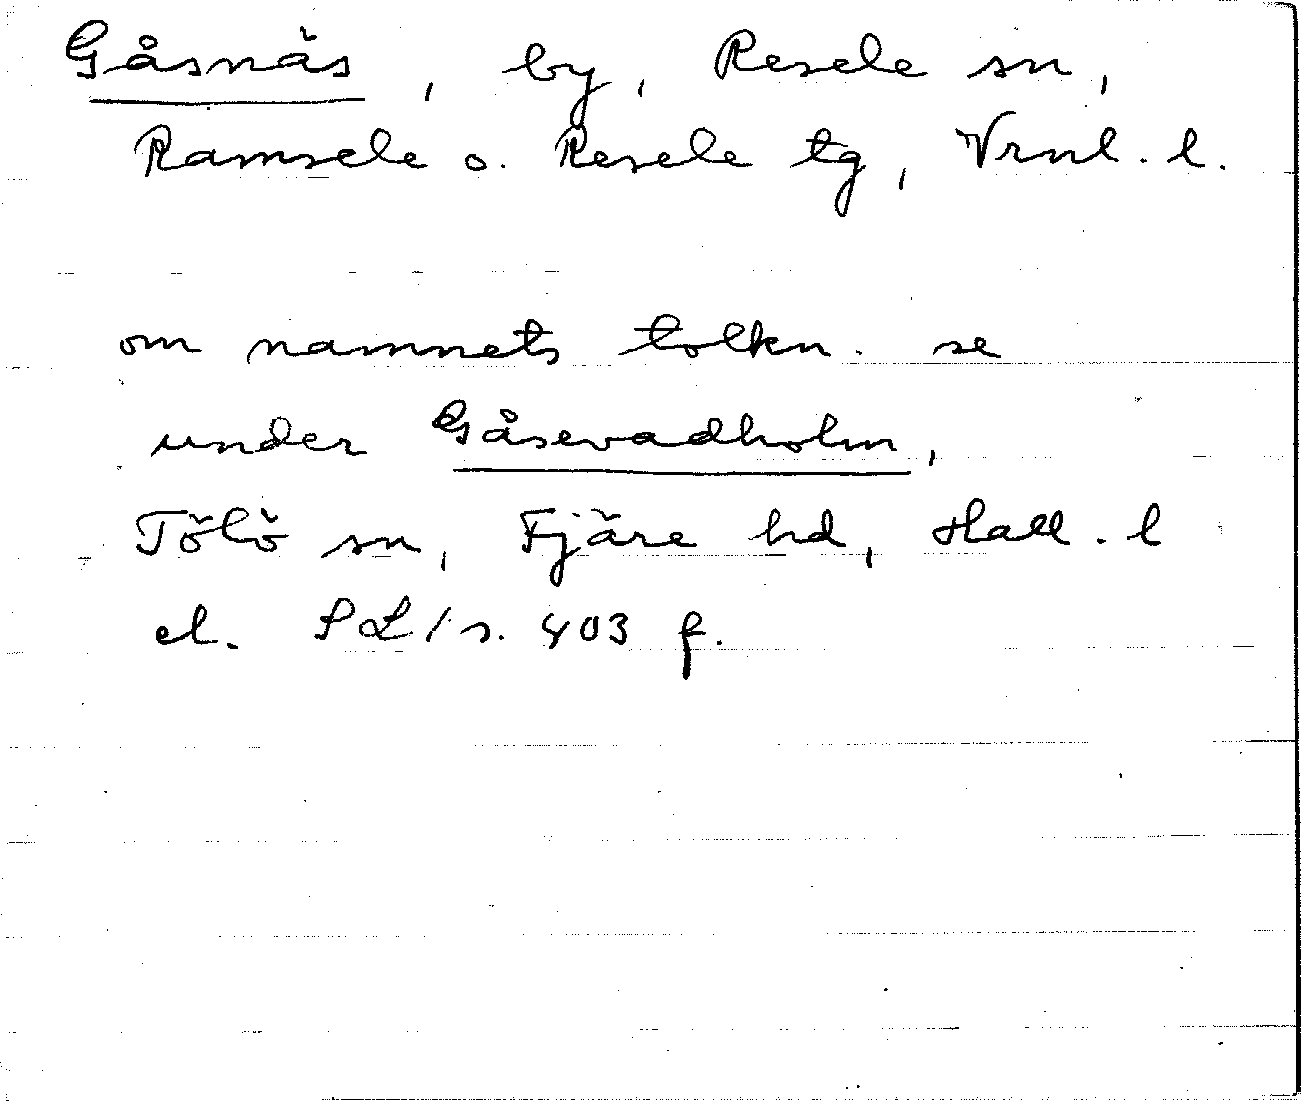 Gåsnäs, by, Resele sn,
Ramsele o. Resele tg, Vrnl. l.
om namnets tolkn. se
under Gåsevadholm,
Tölö sn, Fjäre hd, Hall. l
el. SOL 1 s. 403 f.